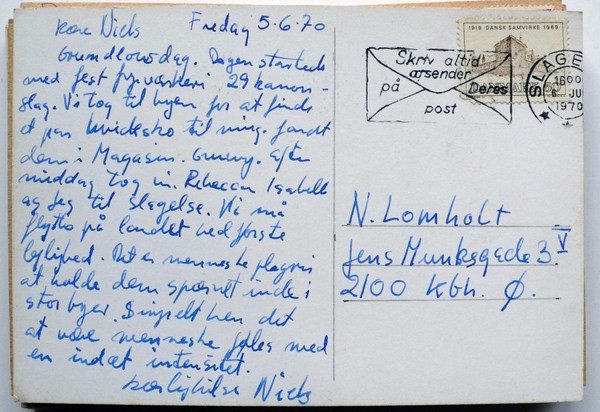 kære Niels
Fredag 5.6.70
Grundlovsdag. Dagen startede
med fest fyrværkeri. 29 kanon-
slag. Vi tog til byen for at finde
et par hvide sko til mig. fandt
dem i Magasin. Efter
middag tog vi. Rebecca Isabell
og jeg til Slagelse. Vi må
flytte på landet ved første
lejlighed. Det er menneske plageri
at holde dem spærret inde i
stor byer. Simpelthen det
at være menneske føles med
en indæt intensitet.
kærlighilse Niels
1919 DANSK SAMVIRKE 1969
Skriv altid
afsender
på Deres
post
SLAGE
1600
JU
1970
N. Lomholt
Jens Munksgade 3 V
2100 Kbh. Ø.